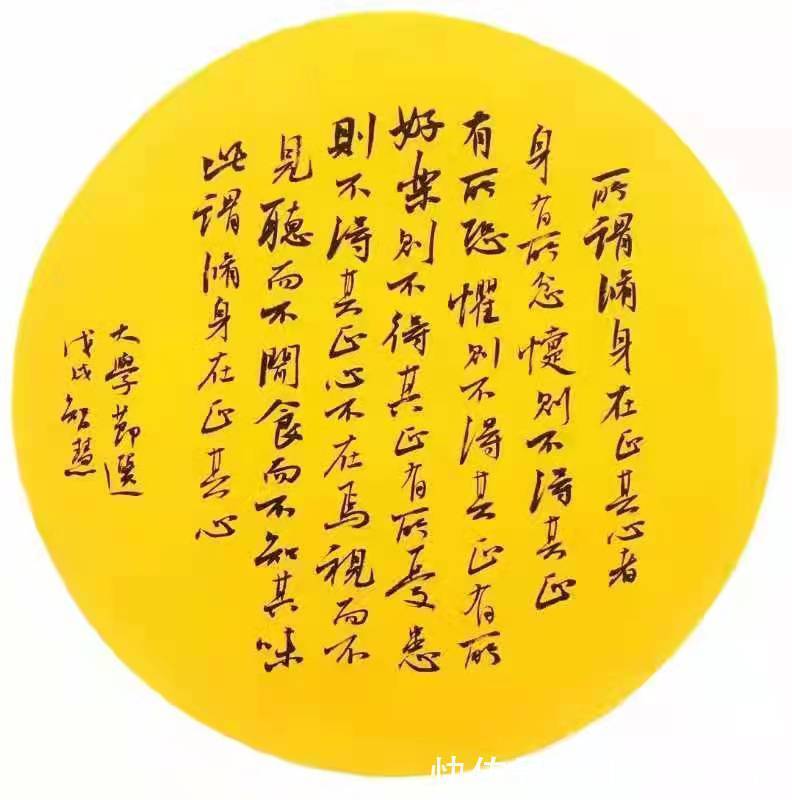 所謂脩身在正其心者
身有所忿懥則不得其正
有所恐懼則不得其正有所
好樂則不得其正有所憂患
則不得其正心不在焉視而不
見聽而不聞食而不知其味
此謂脩身在正其心
大學節選
戊戌智慧